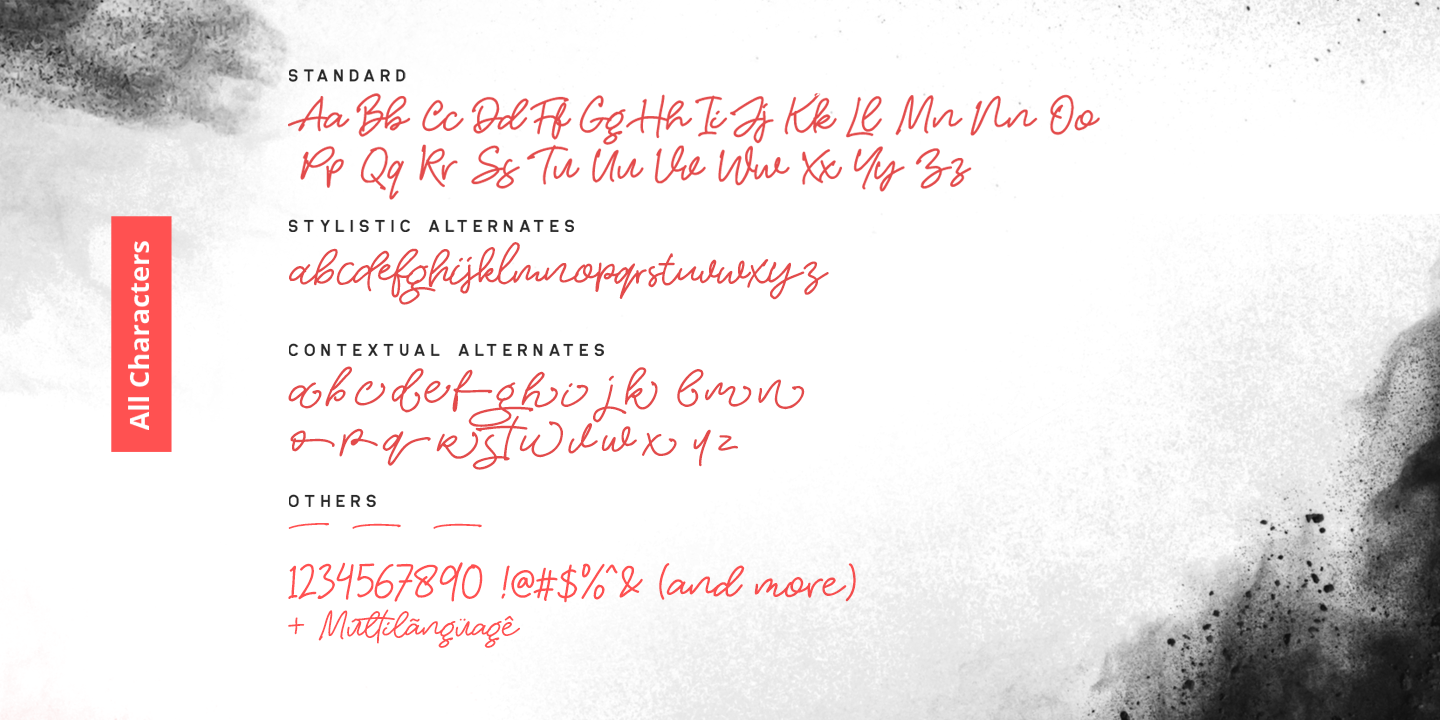 STANDARD
Aa Bb Cc Dd Ff Gg Hh Ii Jj Kk Ll Mm Nn Oo
Pp Qq Rr Ss Tt Uu Vv Ww Xx Yy Zz
STYLISTIC ALTERNATES
abcdefghijklmnopqrstuvwxyz
CONTEXTUAL ALTERNATES
abcdefghi jk lmn
opqrstuvwx yz
OTHERS
1234567890 !@#$%^& (and more)
+ Multilãngüagê
All Characters